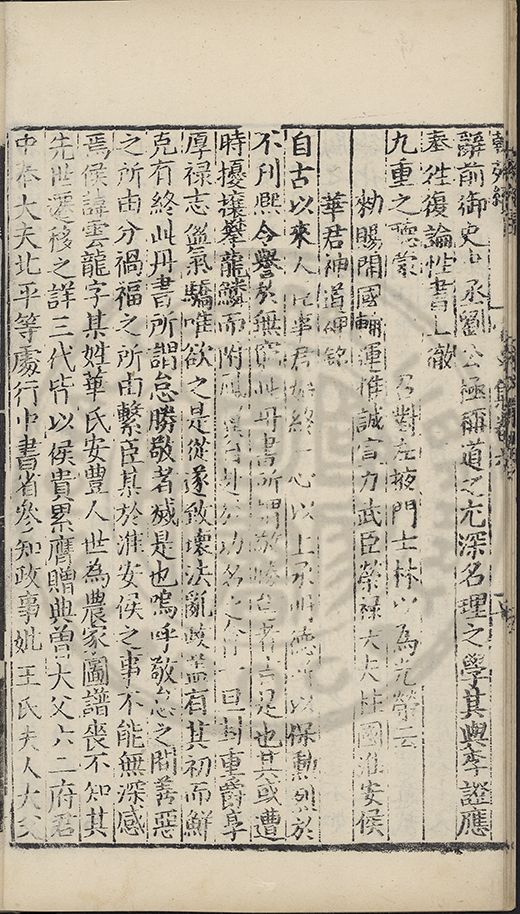 辭前御史中丞劉公極稱道之尤深名理之學其與李證應
奉往復論性書上徹
九重之聽蒙　召對左掖門士林以為光榮云
勑賜開國輔運推誠宣力武臣榮祿大夫柱國淮安侯
華君神道碑銘
自古以來人臣事君始終一心以上承明德可以保勳烈於
不刋熙令譽於無窮此丹書所謂敬勝怠者吉是也其或遭
時擾攘攀龍鱗而附鳳翼赴於功名之會一旦封重爵享
厚禄志盈氣驕唯欲之是從遂致壞法亂紀蓋有其初而鮮
克有終此丹書所謂怠勝敬者滅是也嗚呼敬怠之間善惡
之所由分禍福之所由繫臣某於淮安侯之事不能無深感
焉侯諱雲龍字某姓華氏安豐人世為農家圖譜喪不知其
先世遷移之詳三代皆以侯貴累膺贈典曾大父六二府君
中奉大夫北平等處行中書省參知政事妣王氏夫人大父